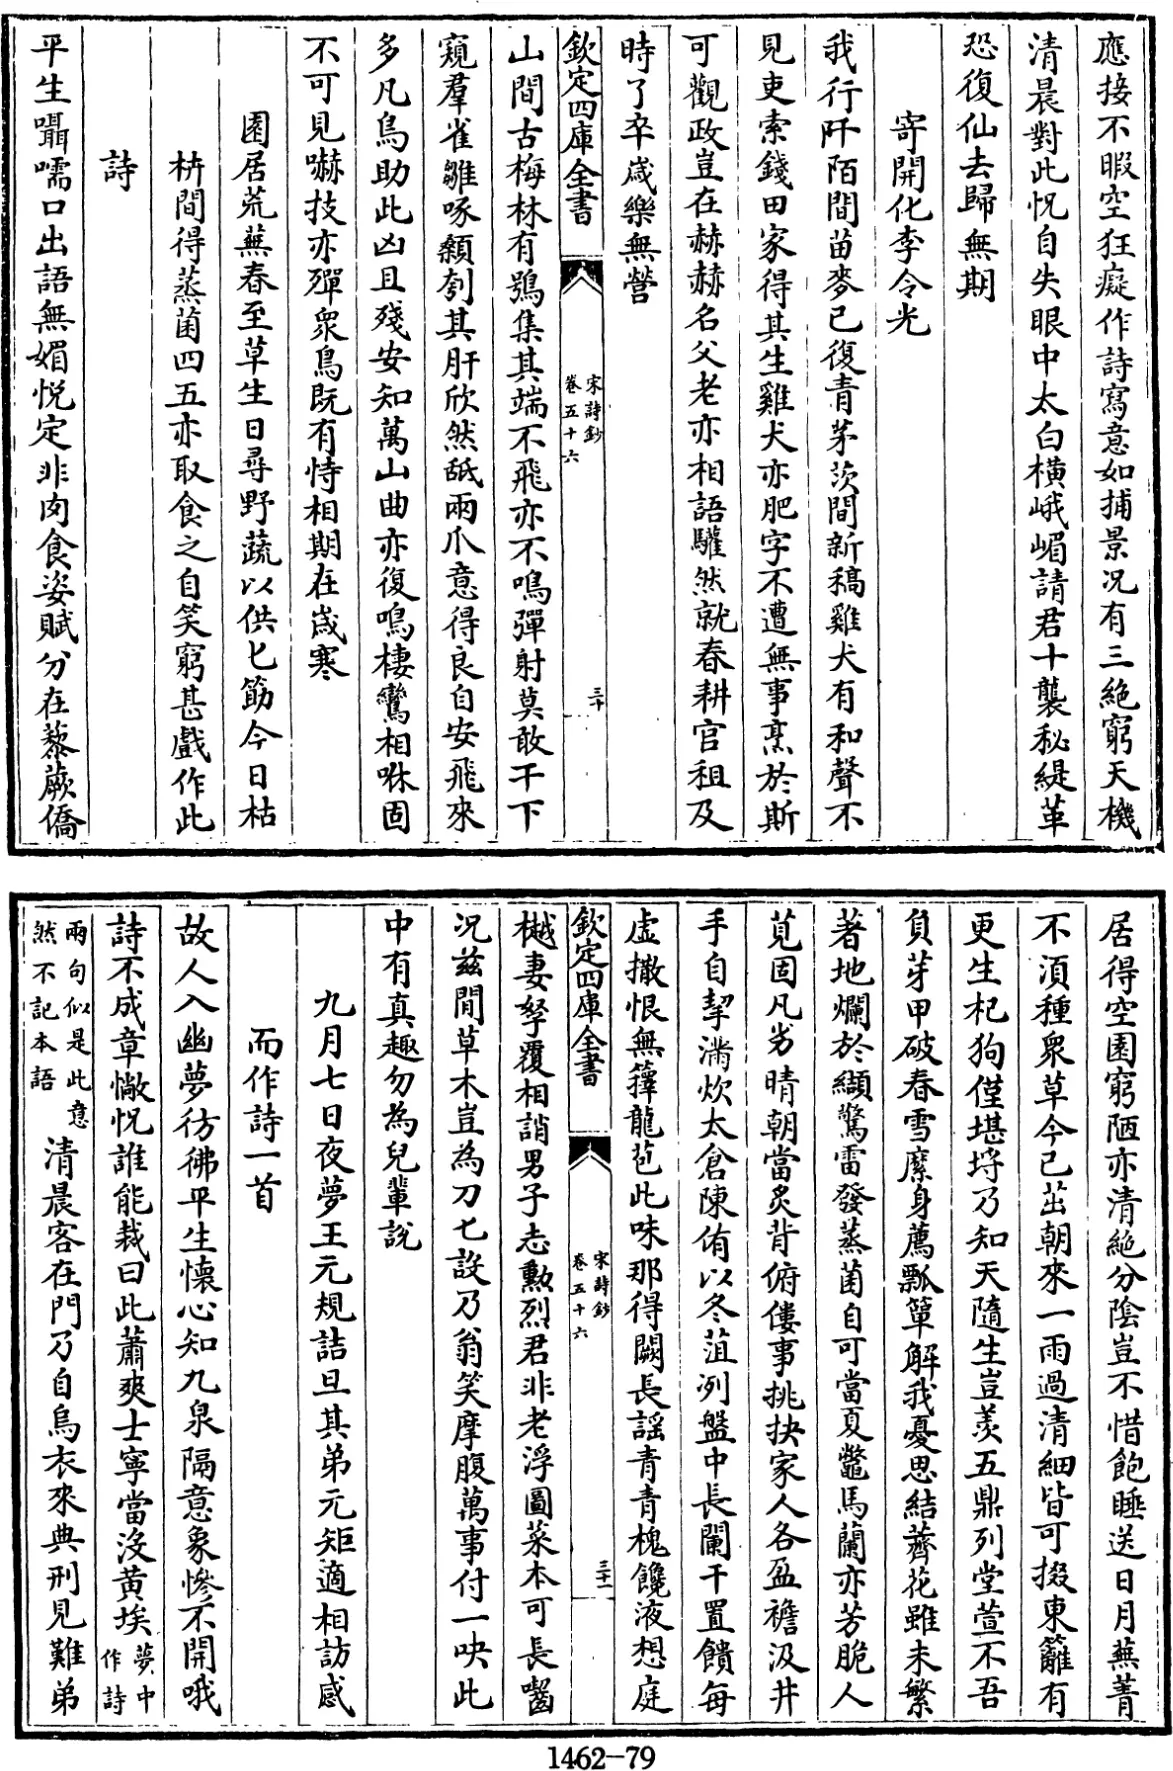 應接不暇空狂癡作詩寫意如捕景況有三絶窮天機
清晨對此怳自失眼中太白横峨嵋請君十襲秘緹革
恐復仙去歸無期
寄開化李令光
我行阡陌間苗麥已復青茅茨間新稿雞犬有和聲不
見吏索錢田家得其生雞犬亦肥字不遭無事烹於斯
可觀政豈在赫赫名父老亦相語驩然就春耕官租及
時了卒歳樂無營
欽定四庫全書
宋詩鈔
卷五十六
三十
山間古梅林有鴞集其端不飛亦不鳴彈射莫敢干下
窺羣雀雛啄顙刳其肝欣然舐兩爪意得良自安飛來
多凡鳥助此凶且殘安知萬山曲亦復鳴棲鸞相咻固
不可見嚇技亦殫衆鳥既有恃相期在歲寒
園居荒蕪春至草生日尋野蔬以供匕筯今日枯
枿間得蒸菌四五亦取食之自笑窮甚戲作此
詩
平生囁嚅口出語無媚悦定非肉食姿賦分在藜蕨僑
居得空園窮陋亦清絶分陰豈不惜飽睡送日月蕪菁
不湏種衆草今已茁朝來一雨過清細皆可掇東籬有
更生杞狗僅堪埒乃知天隨生豈羨五鼎列堂萱不吾
負芽甲破春雪縻身薦瓢簞解我憂思結薺花雖未繁
著地爛於纈驚雷發蒸菌自可當夏鼈馬蘭亦芳脆人
莧固凡劣晴朝當炙背俯僂事挑抉家人各盈襜汲井
手自挈滫炊太倉陳侑以冬菹洌盤中長闌干置饋每
虚撤恨無籜龍苞此味那得闕長謡青青槐饞液想庭
欽定四庫全書
宋詩鈔
卷五十六
三十一
樾妻孥覆相誚男子志勲烈君非老浮圖菜本可長齧
况兹閒草木豈為刀匕設乃翁笑摩腹萬事付一吷此
中有真趣勿為兒輩説
九月七日夜夢王元規詰旦其弟元矩適相訪感
而作詩一首
故人入幽夢彷彿平生懐心知九泉隔意象慘不開哦
詩不成章憱怳誰能裁曰此蕭爽士寜當没黄埃夢中作詩
兩句似是此意然不記本語清晨客在門乃自烏衣來典刑見難弟
1462-79